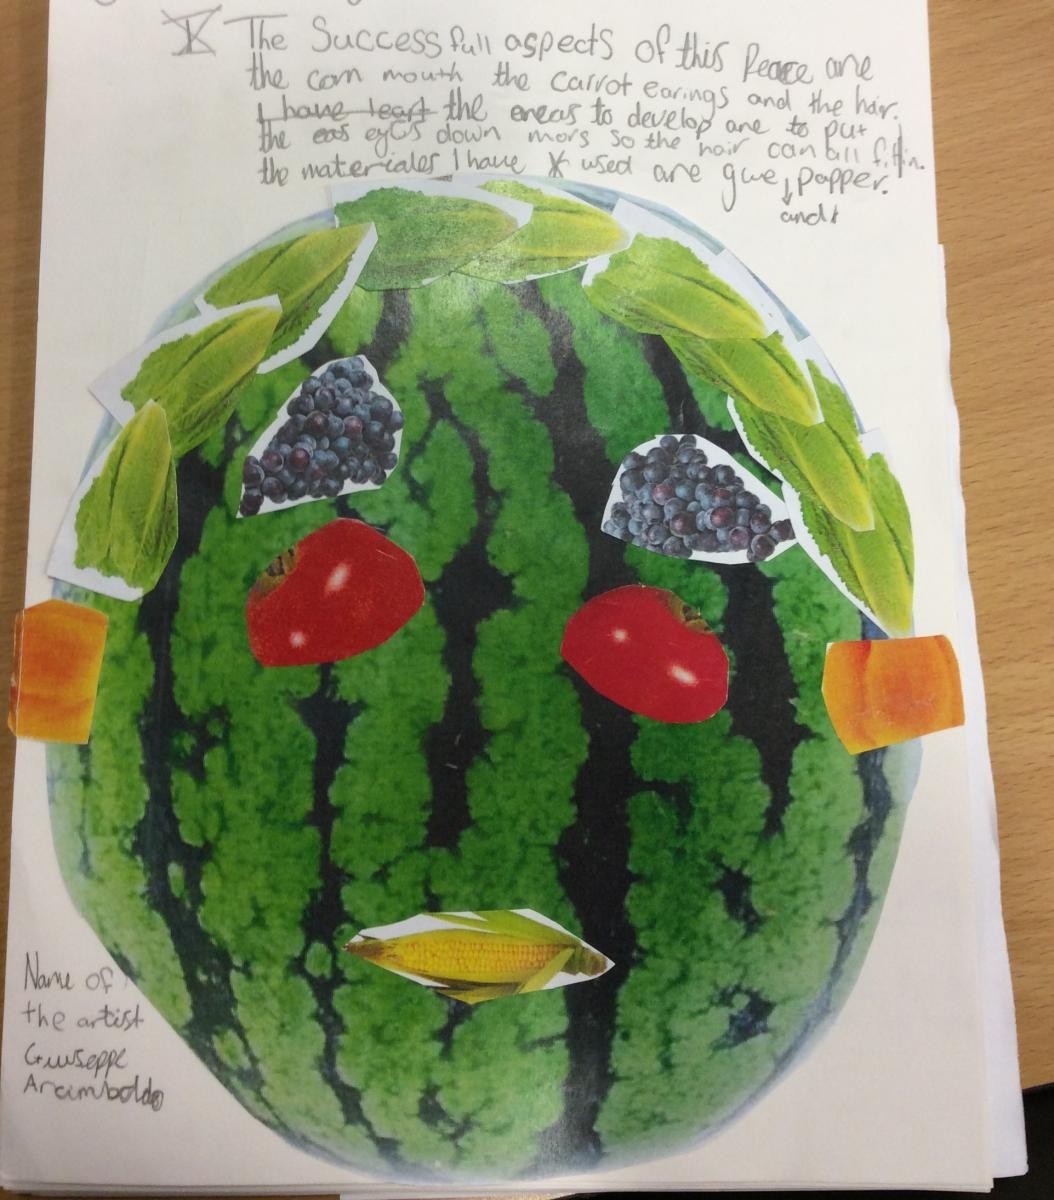 The Successfull aspects of this Peace are
the corn mouth the carrot earings and the hair.
I have leart the ereas to develop are to put
the eas eyes down mors so the hair can all fittin.
the materiales I have used are glue papper.
and
Name of
the artist
Giuseppe
Arcimboldo